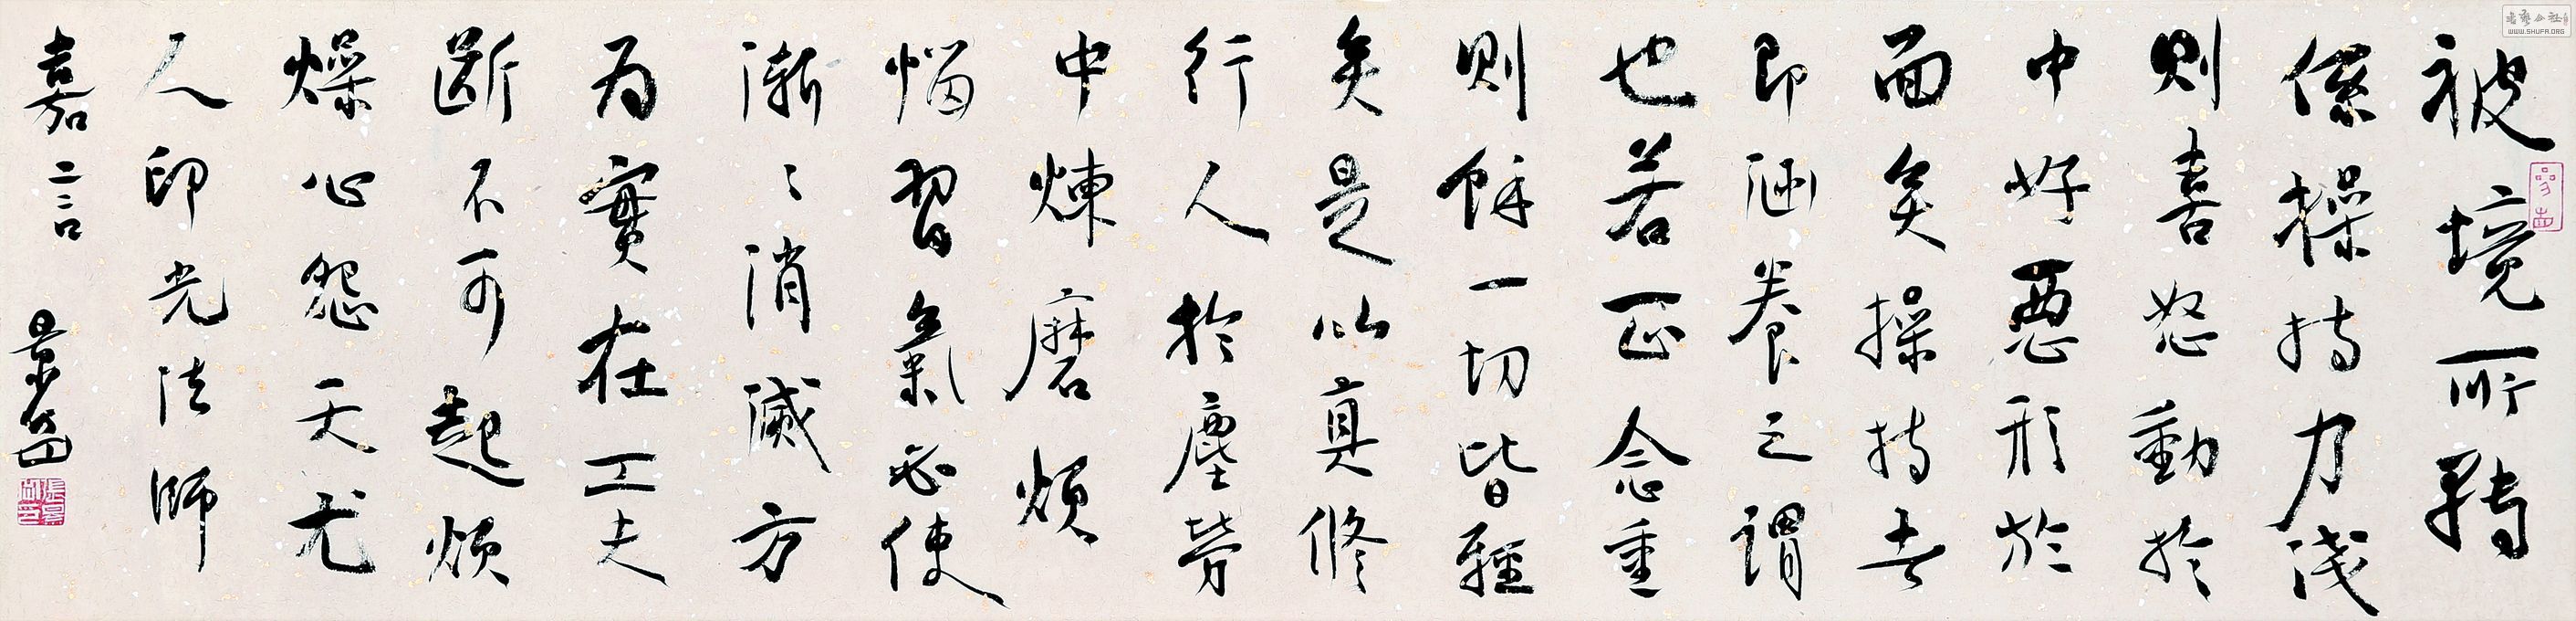 被境所轉
係操持力淺
則喜怒動於
中好惡形於
面矣操持者
即涵養之謂
也若正念重
則餘一切皆輕
矣是以真修
行人於塵勞
中煉磨煩
惱習氣必使
漸々消滅方
為實在工夫
斷不可起煩
燥心怨天尤
人印光法師
嘉言
WWW.SHUFA.ORG